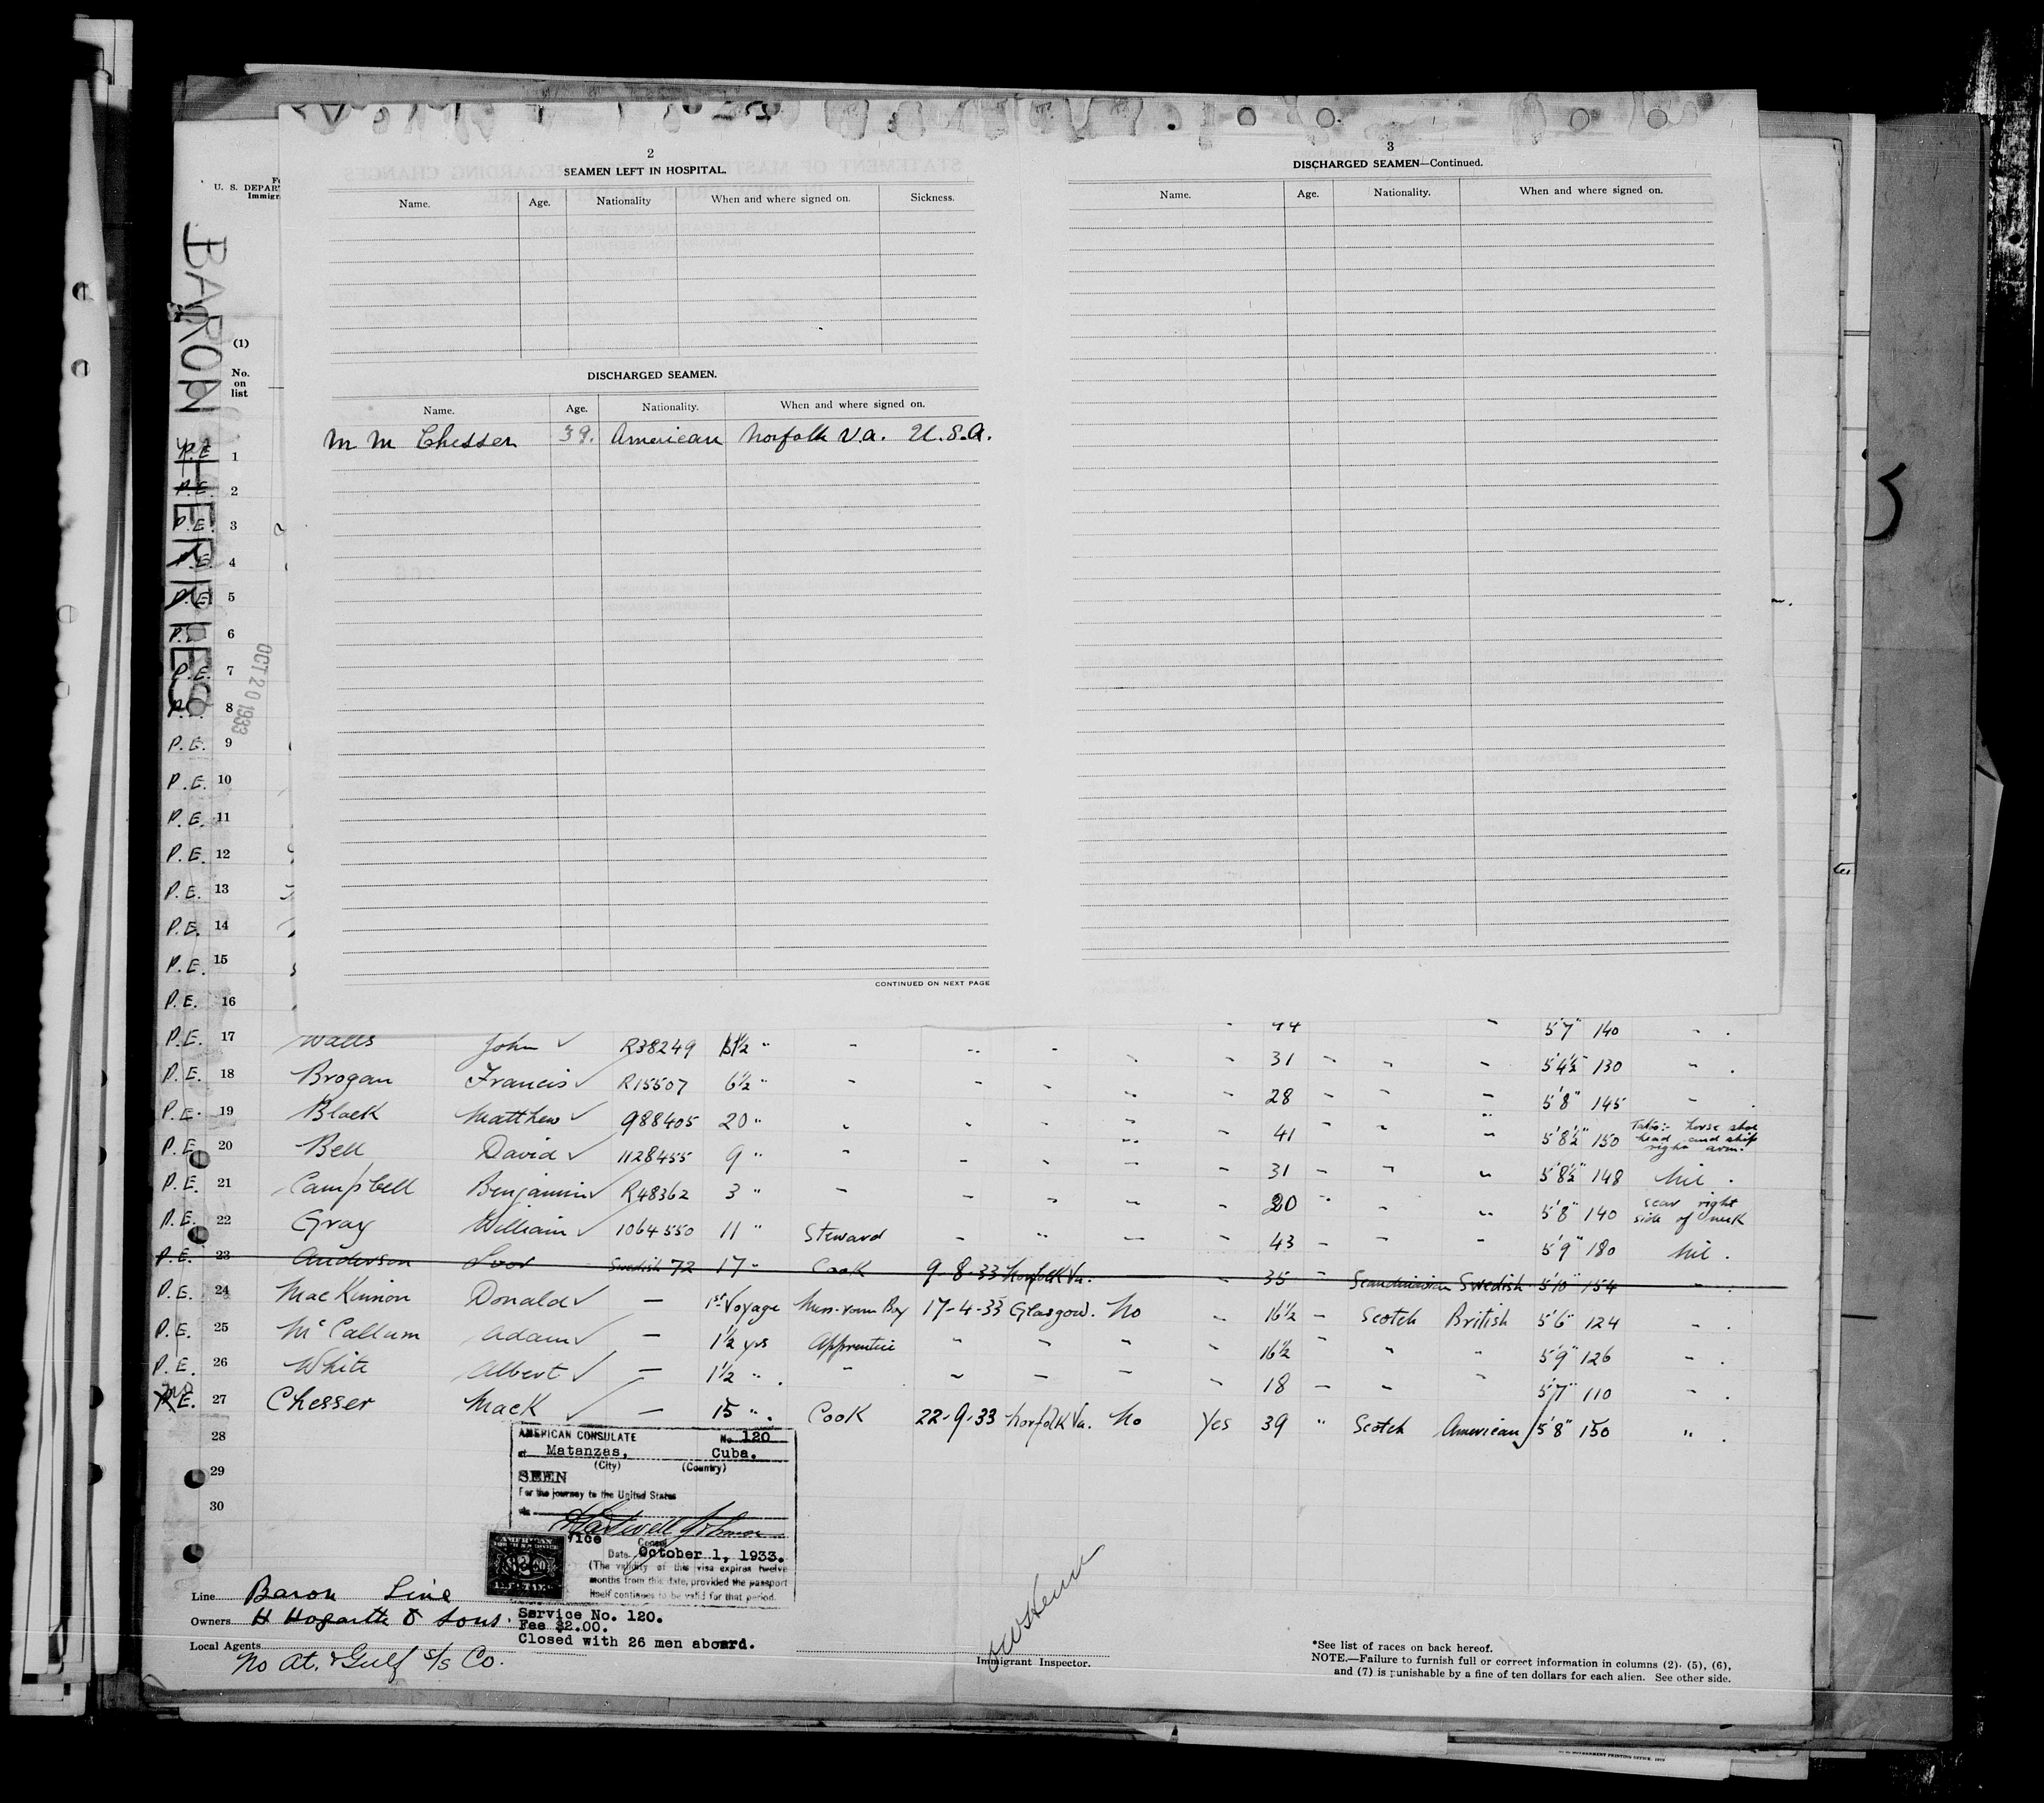 2
SEAMEN LEFT IN HOSPITAL.
Name. Age. Nationality When and where signed on. Sickness.
DISCHARGED SEAMEN.
Name. Age. Nationality. When and where signed on.
M M Chesser 39. American Norfolk Va. U.S.A.
CONTINUED ON NEXT PAGE
3
DISCHARGED SEAMEN—Continued.
Name. Age. Nationality. When and where signed on.
U. S. DEPAR
Immigr
BARON
(1)
No.
on
list
OCT 20 1933
1
P.E. 2
P.E. 3
P.E. 4
P.E. 5
P.E. 6
P.E. 7
P.E. 8
P.E. 9
P.E. 10
P.E. 11
P.E. 12
P.E. 13
P.E. 14
P.E. 15
P.E. 16 44 " 5'7" 140 " .
P.E. 17 Watts John ✓ R38249 " " " " " " 31 " " " 5'4½" 130 " .
P.E. 18 Brogan Francis ✓ R15507 6½ " " " " " " 28 " " " 5'8" 145 " .
P.E. 19 Black Matthew ✓ 988405 20 " " " " " " 41 " " " 5'8½" 150 Tatto:- horse shoe head and ship right arm.
P.E. 20 Bell David ✓ 1128455 9 " " " " " " 31 " " " 5'8½" 148 Nil .
P.E. 21 Campbell Benjamin ✓ R48362 3 " " " " " " 20 " " " 5'8" 140 scar right side of neck
P.E. 22 Gray William ✓ 1064550 11 " Steward " " " " 43 " " " 5'9" 180 Nil .
P.E. 23 Anderson Swedish 72 17 " Cook 9-8-33 Norfolk Va. " 35 " Scandinavian Swedish 5'10" 154 " .
P.E. 24 MacKinnon Donald ✓ — 1st Voyage Mess-room Boy 17-4-33 Glasgow. No " 16½ " Scotch British 5'6" 124 " .
P.E. 25 McCallum Adam ✓ — 1½ yrs Apprentice " " " " 16½ " " " 5'9" 126 " .
P.E. 26 White Albert ✓ — 1½ " . " " " " " 18 " " " 5'7" 110 " .
P.E. 27 Chesser Mack ✓ — 15 " . Cook 22-9-33 Norfolk Va. No Yes 39 " Scotch American 5'8" 150 " .
28
29
30
AMERICAN CONSULATE No 120
at Matanzas, Cuba.
(City) (Country)
SEEN
For the journey to the United States
via
Hartwell Johnson
Vice Consul
Date October 1, 1933.
(The validity of this visa expires twelve
months from this date, provided the passport
itself continues to be valid for that period.
Service No. 120.
Fee $2.00.
Closed with 26 men aboard.
Line Baron Line
Owners H Hogarth & Sons.
Local Agents No At. & Gulf S/S Co.
Immigrant Inspector.
*See list of races on back hereof.
NOTE.—Failure to furnish full or correct information in columns (2), (5), (6),
and (7) is punishable by a fine of ten dollars for each alien. See other side.